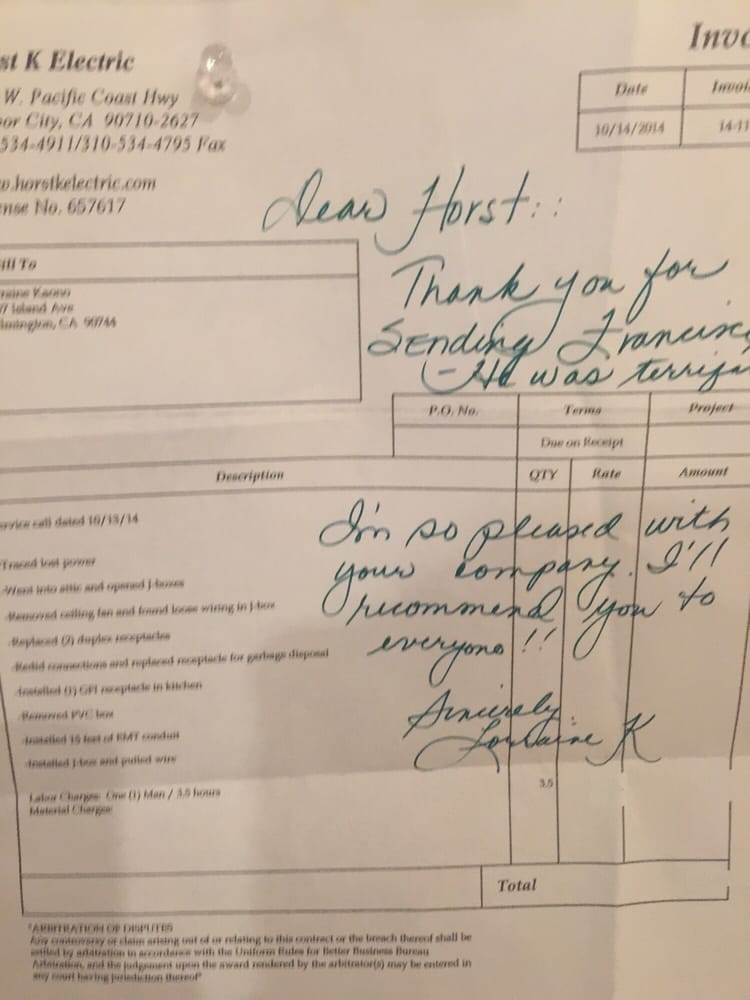 st K Electric
Invo
W. Pacific Coast Hwy
or City, CA 90710-2627
534-4911/310-534-4795 Fax
Date Invoi
10/14/2014 14-11
.horstkelectric.com
nse No. 657617
Dear Horst::
ill To
Island Ave
mington, CA 90744
Thank you for
Sending Francisc
- He was terrifi
P.O. No. Terms Project
Due on Receipt
Description QTY Rate Amount
ervice call dated 10/13/14
Traced lost power
-Went into attic and opened j-boxes
-Removed ceiling fan and found loose wiring in j-box
-Replaced (2) duplex receptacles
-Redid connections and replaced receptacle for garbage disposal
-Installed (1) GFI receptacle in kitchen
-Removed PVC box
-Installed 15 feet of EMT conduit
-Installed j-box and pulled wire
I'm so pleased with
your company. I'll
recommend you to
everyone!!
Sincerely,
Lorraine K
Labor Charges: One (1) Man / 3.5 hours 3.5
Material Charges:
Total
"ARBITRATION OF DISPUTES
Any controversy or claim arising out of or relating to this contract or the breach thereof shall be
settled by arbitration in accordance with the Uniform Rules for Better Business Bureau
Arbitration, and the judgement upon the award rendered by the arbitrator(s) may be entered in
any court having jurisdiction thereof"